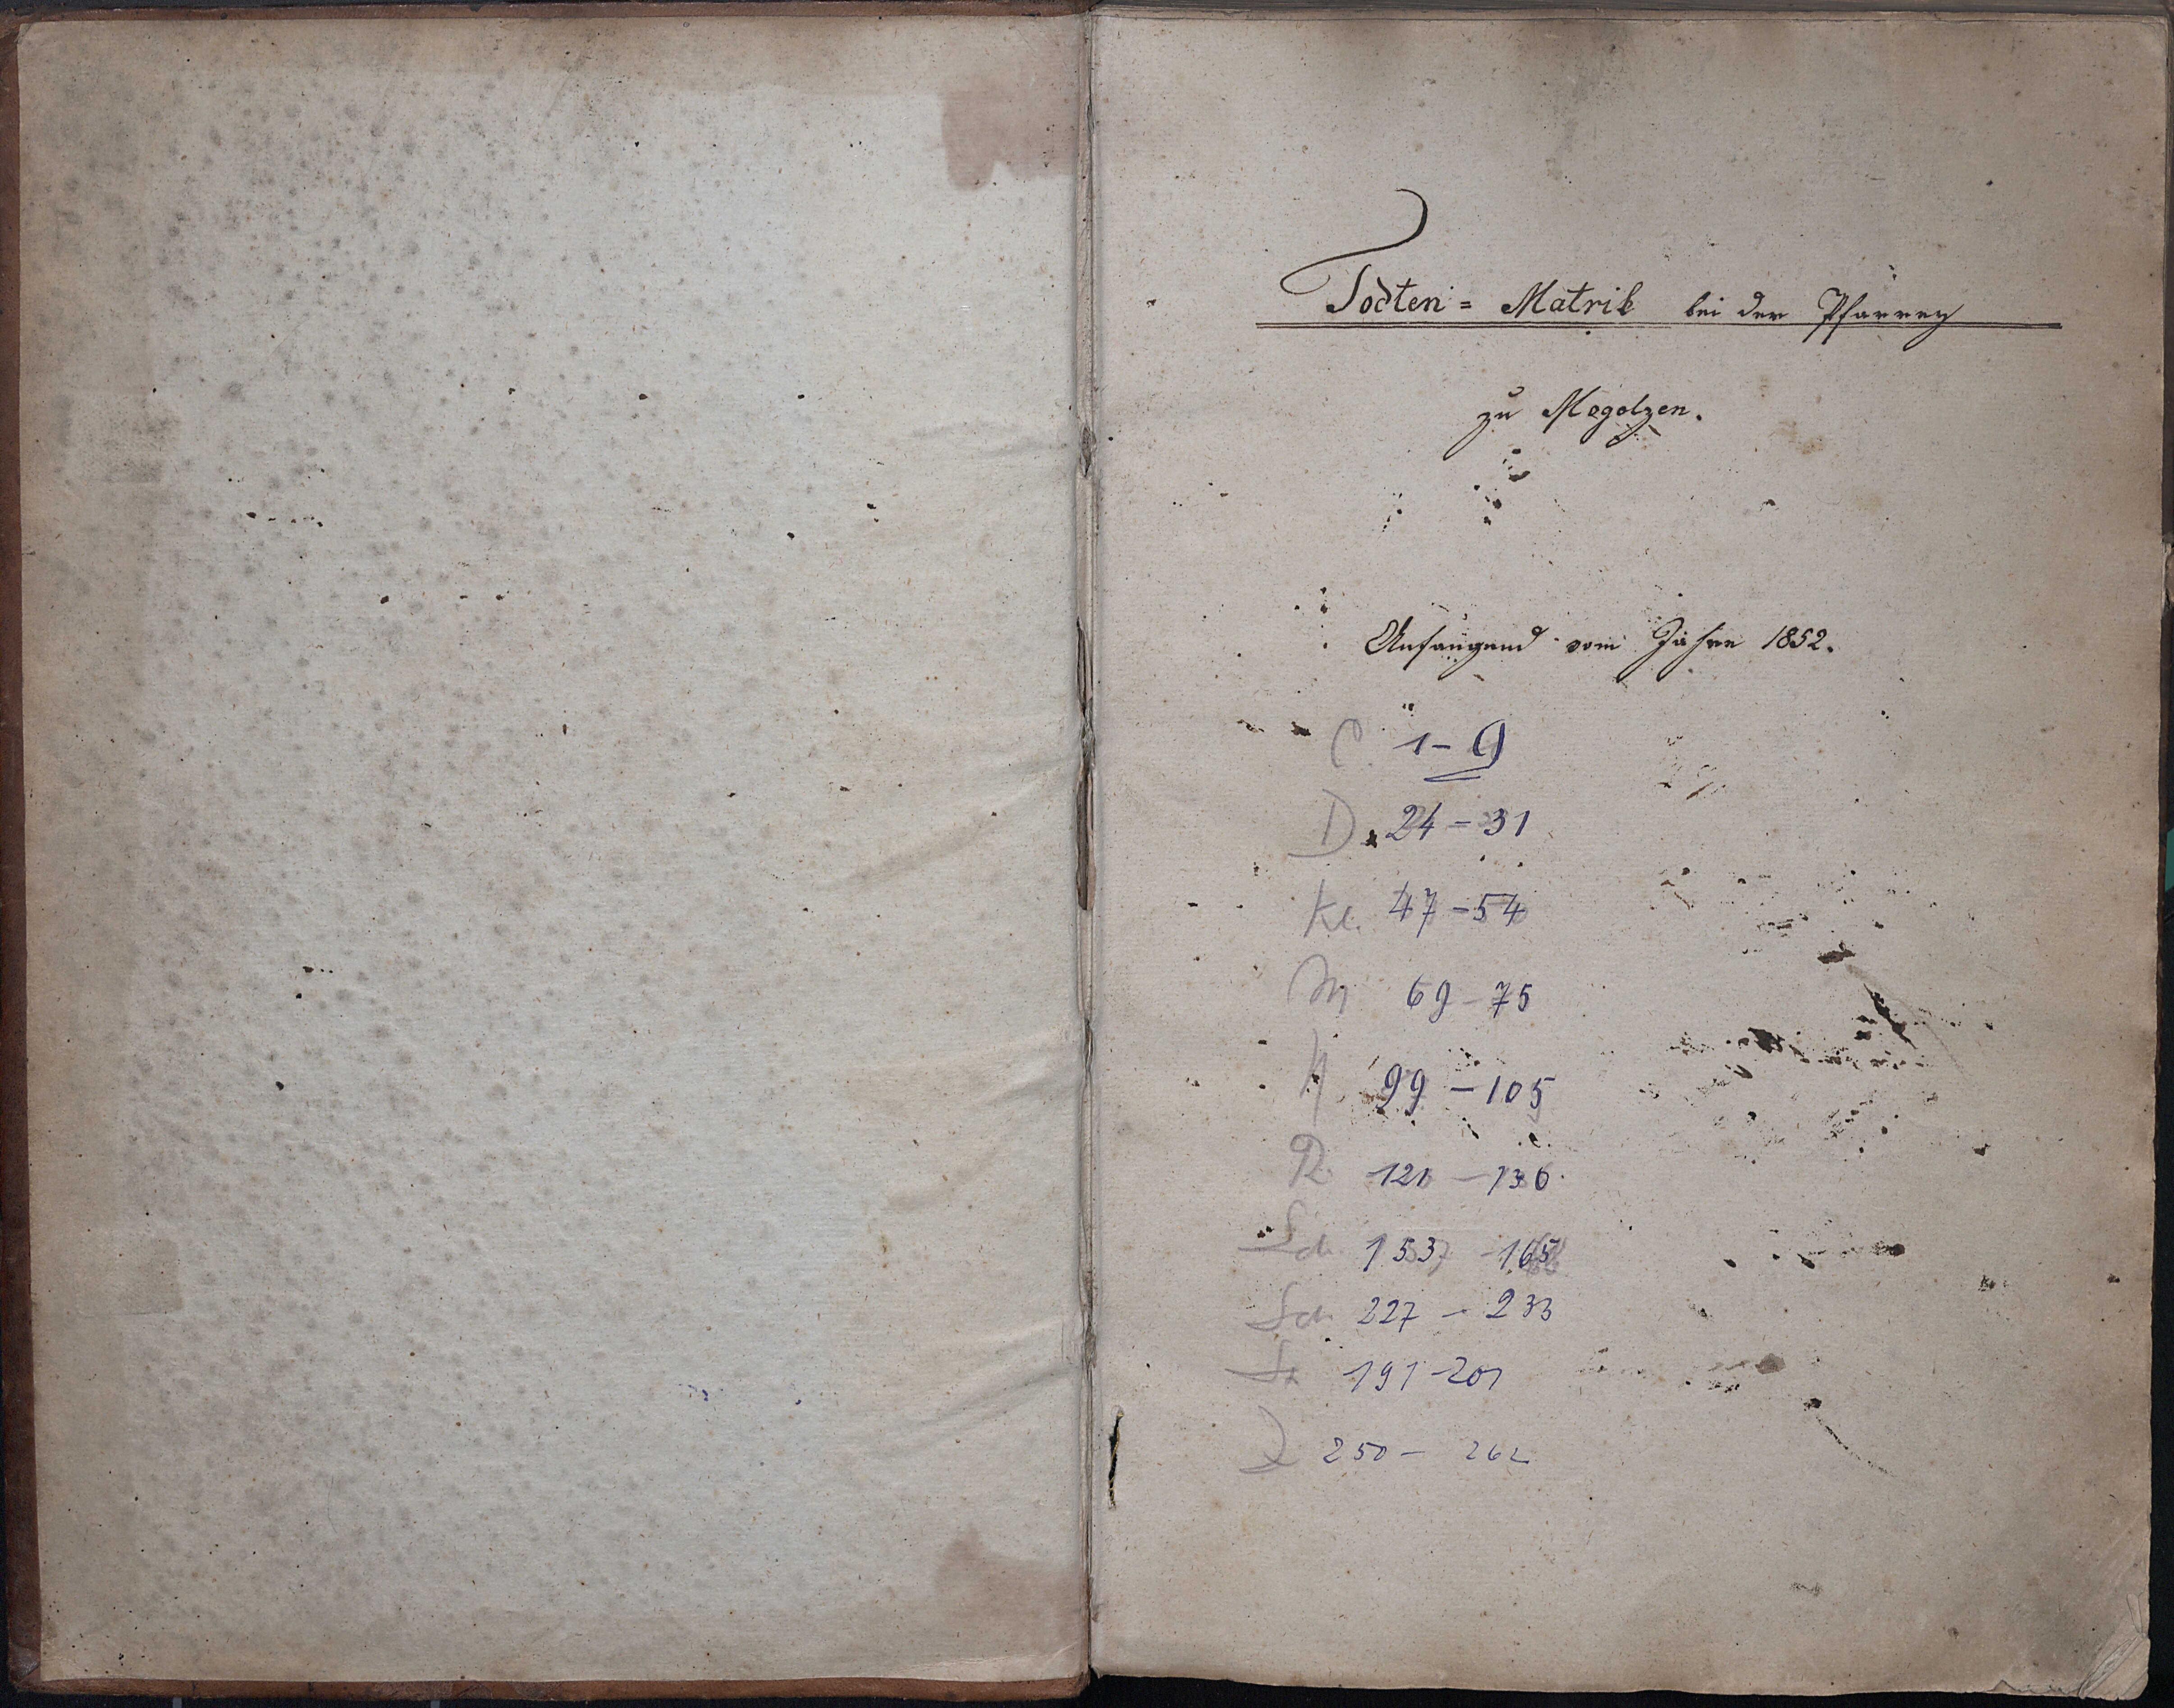 Todten = Matrik bei der Pfarrey
zu Mogolzen.
Anfangend vom Jahre 1852.
C. 1 - 9
D. 24 - 31
Kl. 47 - 54
M 69 - 75
99 - 105
R. 121 - 136.
Sch 153 - 165
Sch 227 - 233
St 191 - 201
Z 250 - 262